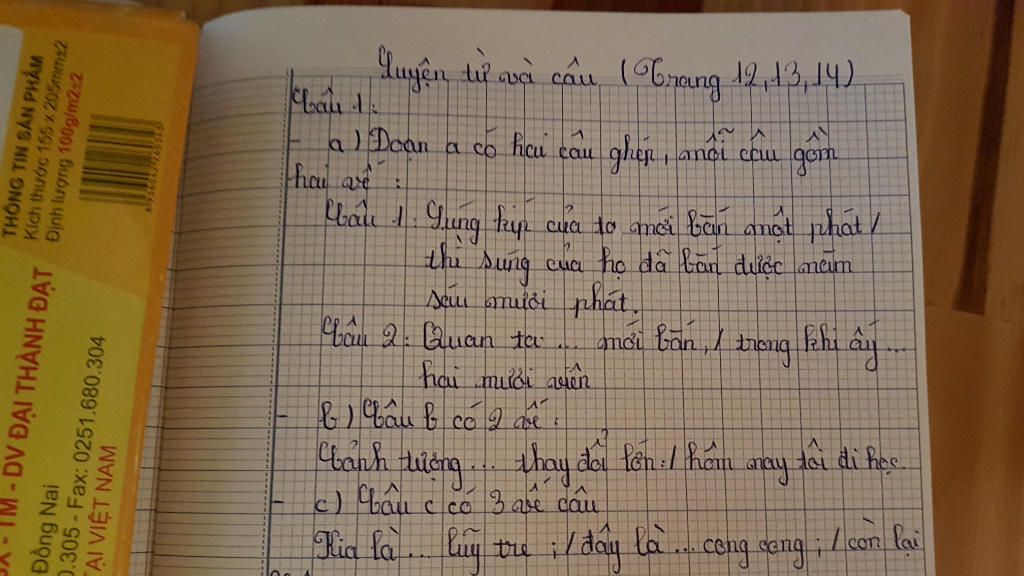 Luyện từ và câu (Trang 12, 13, 14)
Câu 1:
- a) Đoạn a có hai câu ghép, mỗi câu gồm
hai vế :
Câu 1: Súng kíp của ta mới bắn một phát /
thì súng của họ đã bắn được năm
sáu mươi phát.
Câu 2: Quan ta ... mới bắn, / trong khi ấy ...
hai mươi viên
- b) Câu b có 2 vế :
Cảnh tượng ... thay đổi lớn: / hôm nay tôi đi học.
- c) Câu c có 3 vế câu
Kia là ... lũy tre ; / đây là ... cong cong ; / còn lại
THÔNG TIN SẢN PHẨM
Kích thước 155 x 205mm±2
Định lượng 100g/m2±2
SX - TM - DV ĐẠI THÀNH ĐẠT
Đồng Nai
0.305 - Fax: 0251.680.304
TẠI VIỆT NAM